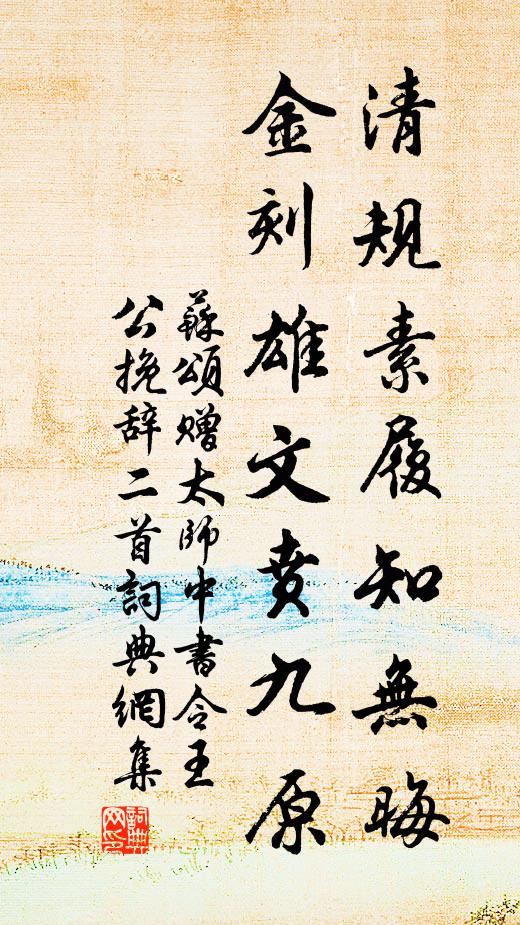 清規素履知無晦
金刻雄文賁九原
蘇頌贈太師中書令王
公挽辞二首詞典網集
詞典
网印